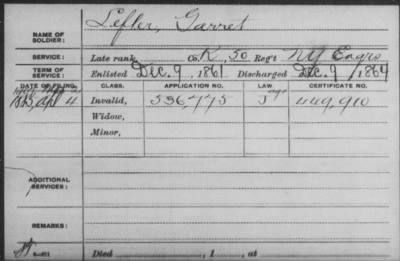 Lefler, Garret
NAME OF SOLDIER:
SERVICE: Late rank, Co. K, 50 Reg't NY Engrs
TERM OF SERVICE: Enlisted Dec. 9, 1861 Discharged Dec. 9, 1864
DATE OF FILING. CLASS. APPLICATION NO. LAW. CERTIFICATE NO.
Apl 4 Invalid, 536,775 449,910
Widow,
Minor,
ADDITIONAL SERVICES:
REMARKS:
Died , 1 , at